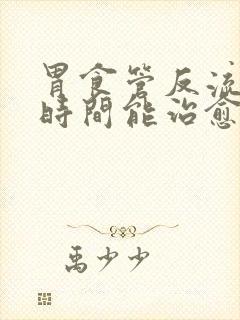 胃食管反流
時間能治愈
禹少少